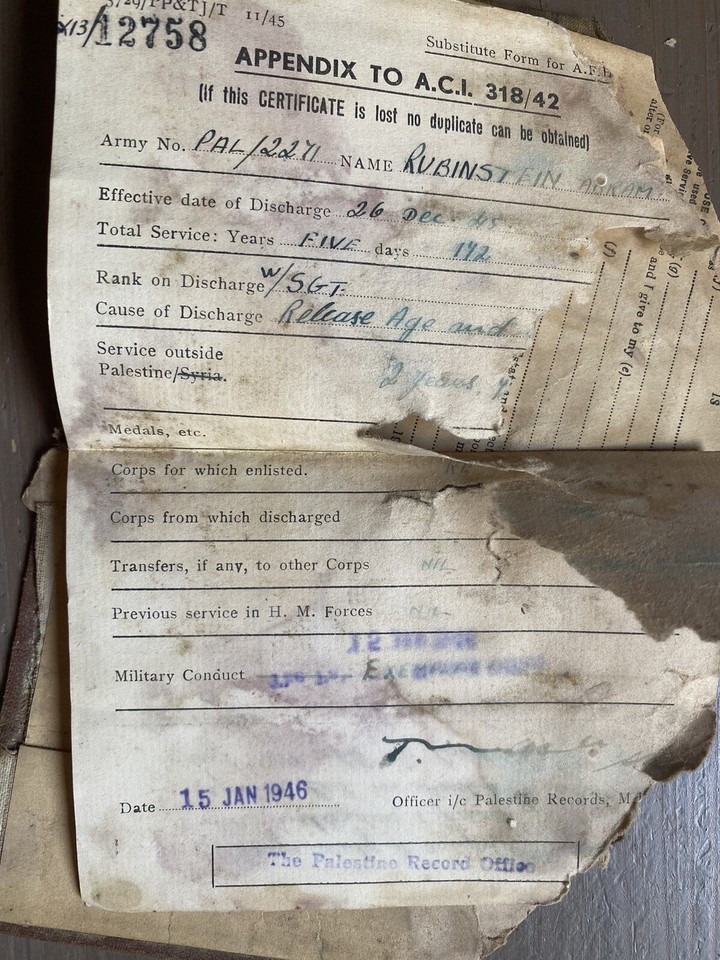 5/29/PP&TJ/T 11/45
X13/12758
Substitute Form for A.F.B
APPENDIX TO A.C.I. 318/42
(If this CERTIFICATE is lost no duplicate can be obtained)
Army No. PAL/2271 NAME RUBINSTEIN
Effective date of Discharge 26 Dec 45
Total Service: Years FIVE days 142
Rank on Discharge W/SGT.
Cause of Discharge Release Age and
Service outside
Palestine/Syria. 2 years
Medals, etc.
Corps for which enlisted.
Corps from which discharged
Transfers, if any, to other Corps NIL
Previous service in H. M. Forces NIL
Military Conduct
Date 15 JAN 1946
Officer i/c Palestine Records,
The Palestine Record Office
and I give to my (e)